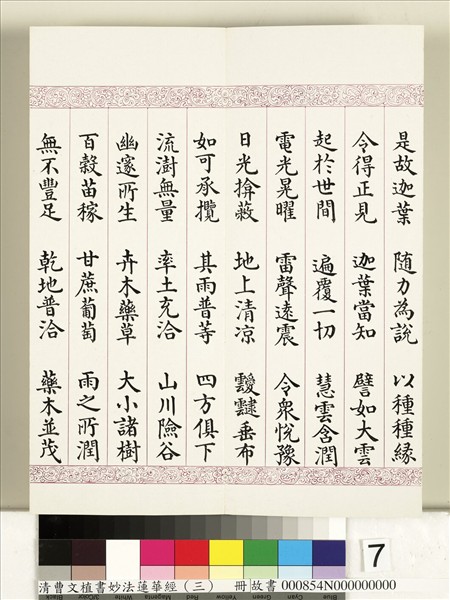 是故迦葉 隨力為說 以種種緣
令得正見 迦葉當知 譬如大雲
起於世間 遍覆一切 慧雲含潤
電光晃曜 雷聲遠震 令眾悅豫
日光揜蔽 地上清凉 靉靆垂布
如可承攬 其雨普等 四方俱下
流澍無量 率土充洽 山川險谷
幽邃所生 卉木藥草 大小諸樹
百穀苗稼 甘蔗葡萄 雨之所潤
無不豐足 乾地普洽 藥木並茂
7
清曹文植書妙法蓮華經（三） 冊 故書 000854N000000000